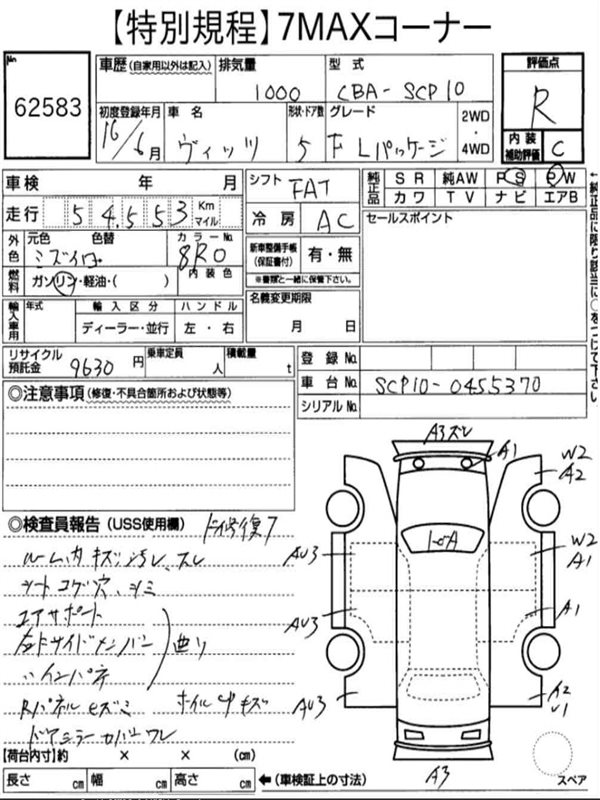 【特別規程】7MAXコーナー
No
62583
車歴 (自家用以外は記入)
排気量
1000
型式
CBA-SCP10
評価点
R
内装補助評価
C
初度登録年月
16/6月
車名
ヴィッツ
形状・ドア数
5
グレード
F Lパッケージ
2WD
・
4WD
車検 年 月
シフト
FAT
純正品
SR 純AW PS PW
カワ TV ナビ エアB
走行
54,553
Km
マイル
冷房
AC
セールスポイント
外色
元色 色替
ミズイロ
カラーNo.
8R0
内装色
新車整備手帳
(保証書付)
有・無
※書類と一緒に保管下さい。
燃料
ガソリン・軽油・( )
名義変更期限
月 日
輸入車用
年式
輸入区分
ハンドル
ディーラー・並行
左・右
リサイクル預託金
9630円
乗車定員
人
積載量
t
登録No.
車台No.
SCP10-0455370
シリアルNo.
◎注意事項 (修復・不具合箇所および状態等)
◎検査員報告 (USS使用欄)
ルーム内キズ、汚レ、スレ
シートコゲ穴、シミ
エアサポート
左Fサイドメンバー
〃インパネ
曲り
Rパネルヒズミ
ホイルcapキズ
ドアミラーカバーワレ
A3スレ
A1
W2
A2
AU3
W2
A1
AU3
A1
AU3
A2
U1
A3
スペア
【荷台内寸】約 × × (cm)
長さ cm 幅 cm 高さ cm ←(車検証上の寸法)
←純正品に限り該当に○をつけて下さい。